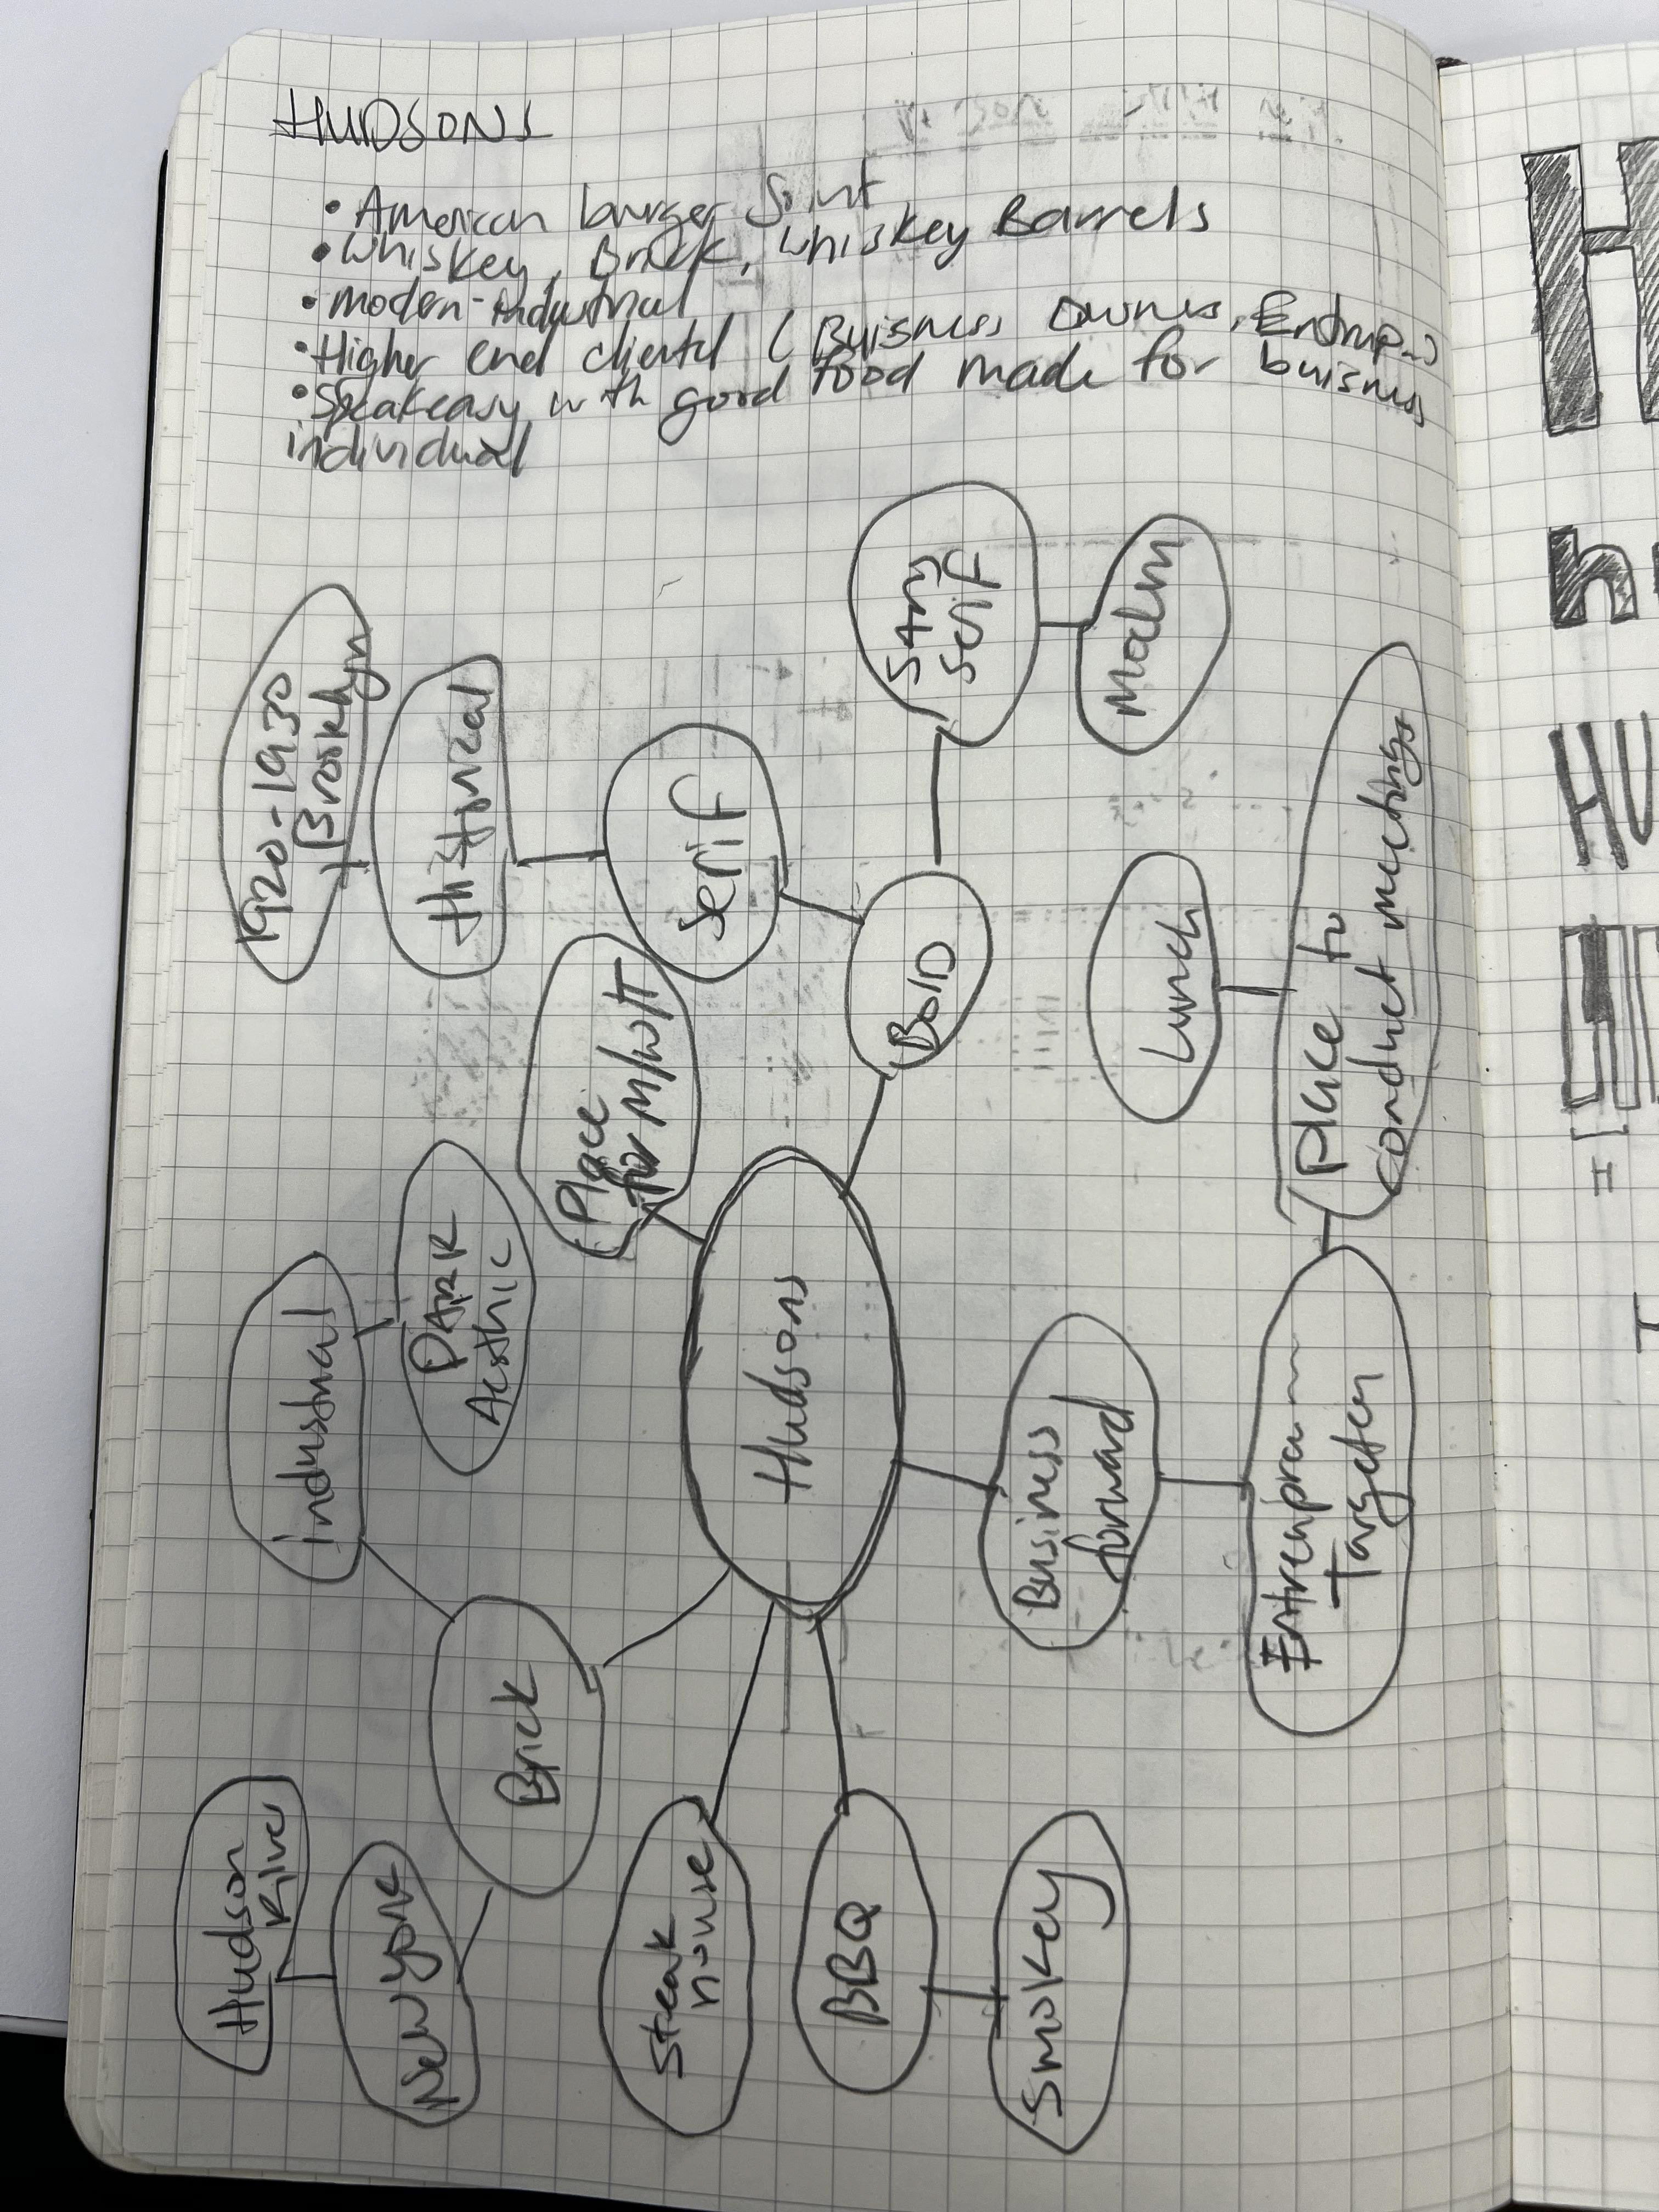 HUDSONS
• American burger Joint
• Whiskey, Brick, Whiskey Barrels
• modern-industrial
• Higher end clientel ( Buisness Owners, Entrup..)
• Speakeasy with good food made for buisness
individual
1920-1930
Brooklyn
Historical
Serif
Sans
Serif
Modern
Bold
Place
for M/W/H
Lunch
Place to
conduct meetings
Industrial
DARK
Aesthic
Hudsons
Business
forward
Targeten
Brick
Hudson
River
New york
Steak
house
BBQ
Smokey
H
h
HU
H
I